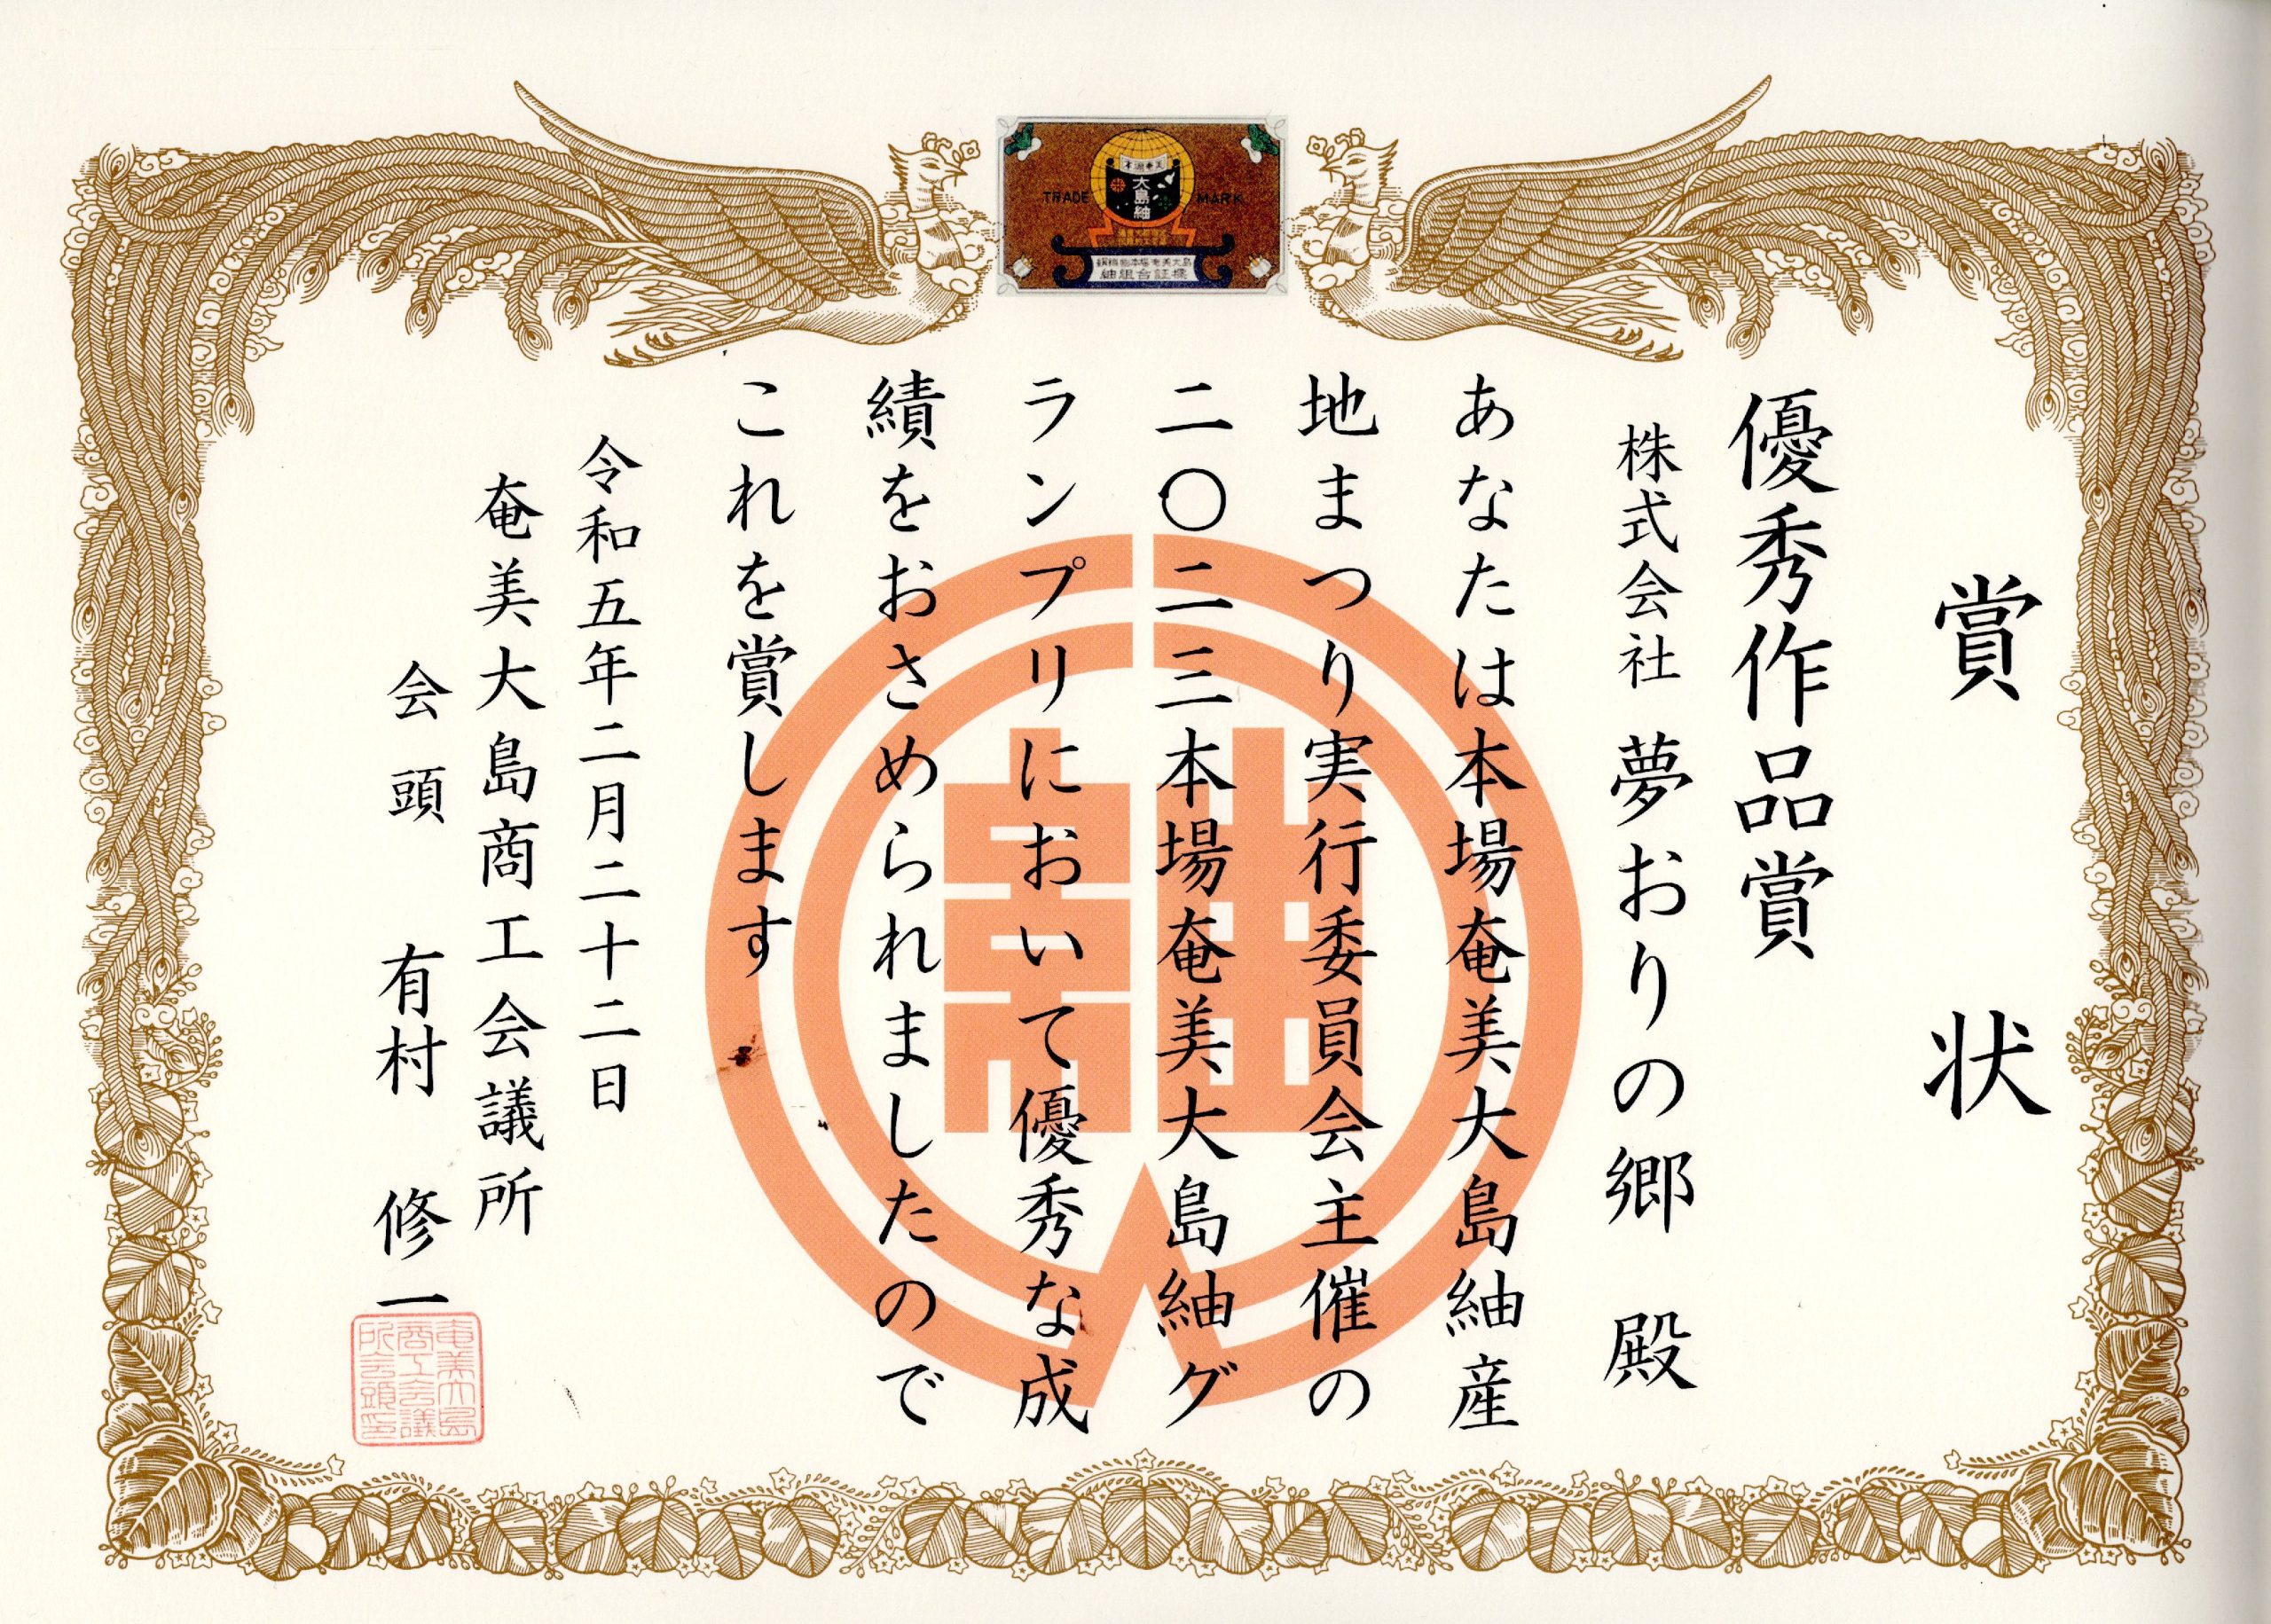 賞状
優秀作品賞
株式会社 夢おりの郷 殿
あなたは本場奄美大島紬産
地まつり実行委員会主催の
二〇二三本場奄美大島紬グ
ランプリにおいて優秀な成
績をおさめられましたので
これを賞します
令和五年二月二十二日
奄美大島商工会議所
会頭 有村 修一
奄美大島
商工会議
所会頭印
TRADE MARK
大島紬
紬